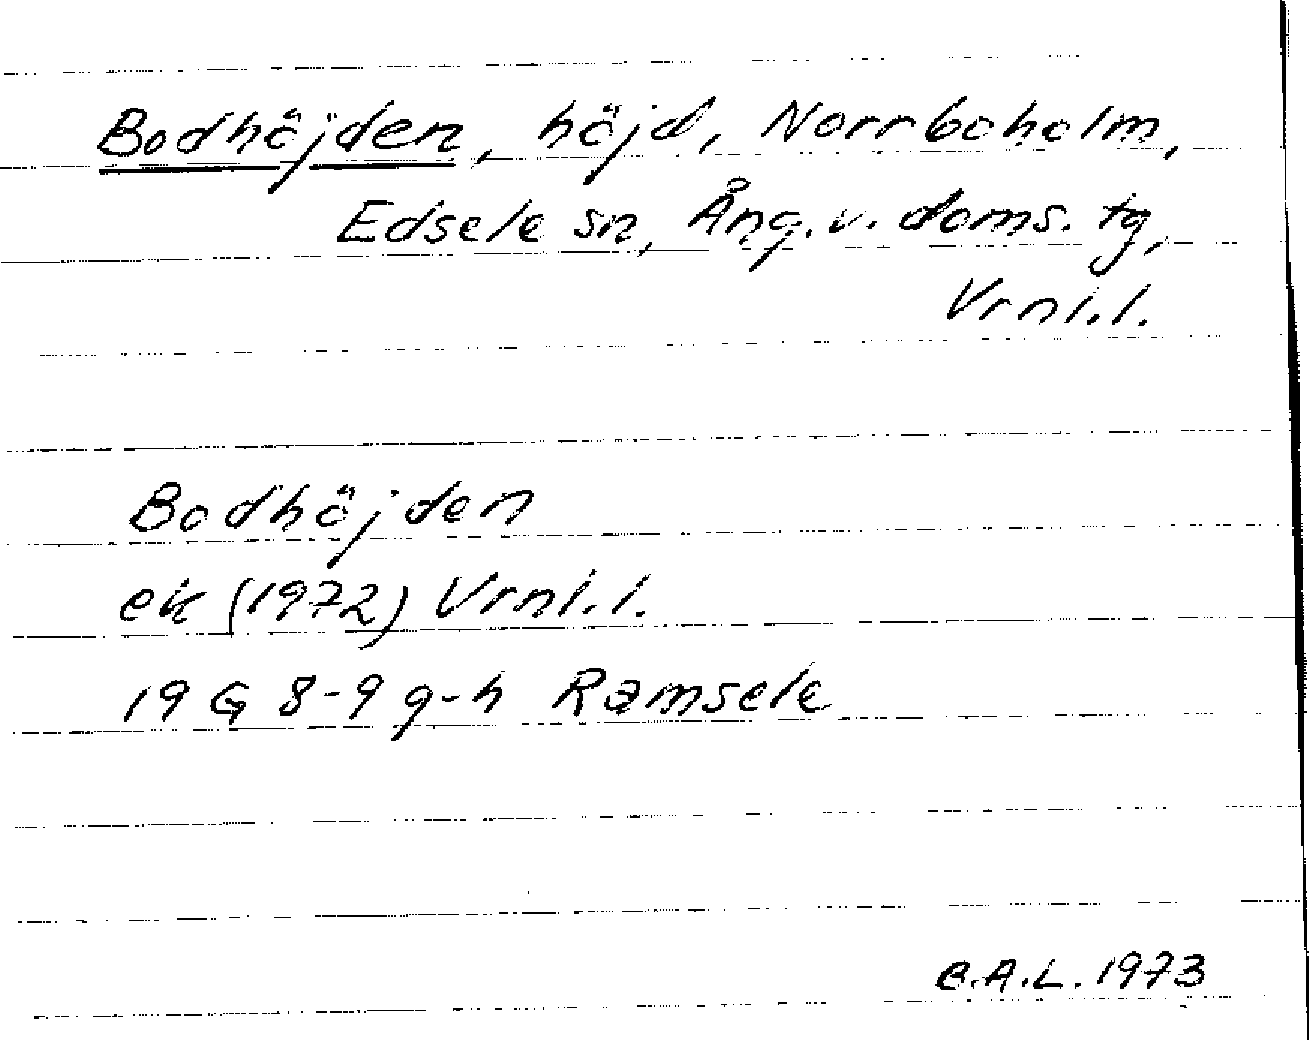 Bodhöjden, höjd, Norrboholm,
Edsele sn, Ång. v. doms. tg,
Vrnl.l.
Bodhöjden
ek (1972) Vrnl.l.
19 G 8-9 g-h Ramsele
C.A.L. 1973